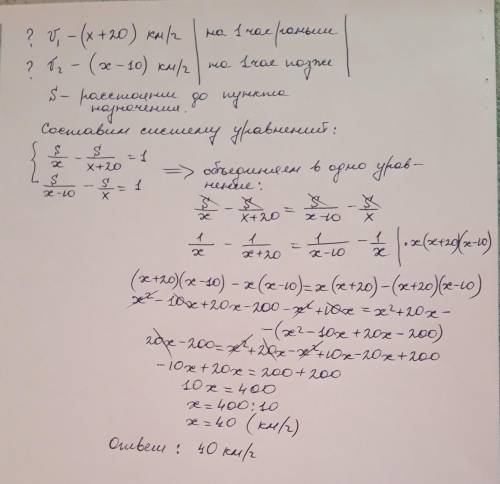 ? v₁ – (x+20) км/г | на 1 час/раньше
? v₂ – (x-10) км/г | на 1 час позже
S – расстояние до пункта
назначения.
Составим систему уравнений:
{ S/x - S/(x+20) = 1
S/(x-10) - S/x = 1
=> объединяем в одно урав-
нение:
S/x - S/(x+20) = S/(x-10) - S/x
1/x - 1/(x+20) = 1/(x-10) - 1/x | • x(x+20)(x-10)
(x+20)(x-10) - x(x-10) = x(x+20) - (x+20)(x-10)
x² - 10x + 20x - 200 - x² + 10x = x² + 20x -
- (x² - 10x + 20x - 200)
20x - 200 = x² + 20x - x² + 10x - 20x + 200
-10x + 20x = 200 + 200
10x = 400
x = 400 : 10
x = 40 (км/г)
Ответ: 40 км/г